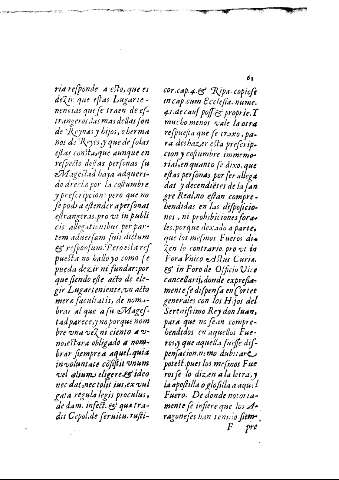 63
ria responde a esto, que es
dezir que estas Lugarte-
nencias que se traen de es-
trangeros, las mas dellas son
de Reynas y hijos, o herma
nos de Reyes, y que de solas
estas consta, que aunque en
respecto destas personas su
Magestad haya adqueri-
do drecto por la costumbre
y prescripcion: pero que no
se podia estender a personas
estrangeras, pro vt in publi
cis allegationibus per par-
tem adversam suis dictum
& responsum. Pero esta res
puesta no hallo yo como se
pueda dezir ni fundar: por
que siendo este acto de ele-
gir Lugarteniente, vn acto
mere facultatis, de nom-
brar al que a su Mages-
tad parece, y no porque nom
bre vna vez ni ciento a v-
no estara obligado a nom-
brar siempre a aquel, quia
in voluntate consistit vnum
vel alium eligere & ideo
nec dat, nec tolit ius, ex vul
gata regula legis proculus,
de dam. infect. & que tra-
dit Cepol. de seruitu. rusti-
cor. cap. 4. & Ripa. copiose
in cap. cum Ecclesia. nume.
41. de caus. poss. & proprie. Y
mucho menos vale la otra
respuesta que se traxo, pa-
ra deshazer esta prescrip-
cion y costumbre immemo-
rial, en quanto se dixo, que
estas personas por ser allega
das y decendientes de la san
gre Real, no estan compre-
hendidas en las disposicio-
nes, ni prohibiciones fora-
les, porque dexado a parte,
que los mesmos Fueros di-
zen lo contrario pro vt in
Foro vnico de Ius Curia.
& in Foro de Officio Vice
cancellarij, donde expressa-
mente se dispensa en Cortes
generales con los Hijos del
Serenissimo Rey don Iuan,
para que no sean compre-
hendidos en aquellos Fue-
ros, y que aquella fuesse dis-
pensacion, nemo dubitare
potest, pues los mesmos Fue
ros se lo dizen a la letra, y
la apostilla o glosilla a aquel
Fuero. De donde notoria-
mente se infiere que los A-
ragoneses han tenido siem-
F pre